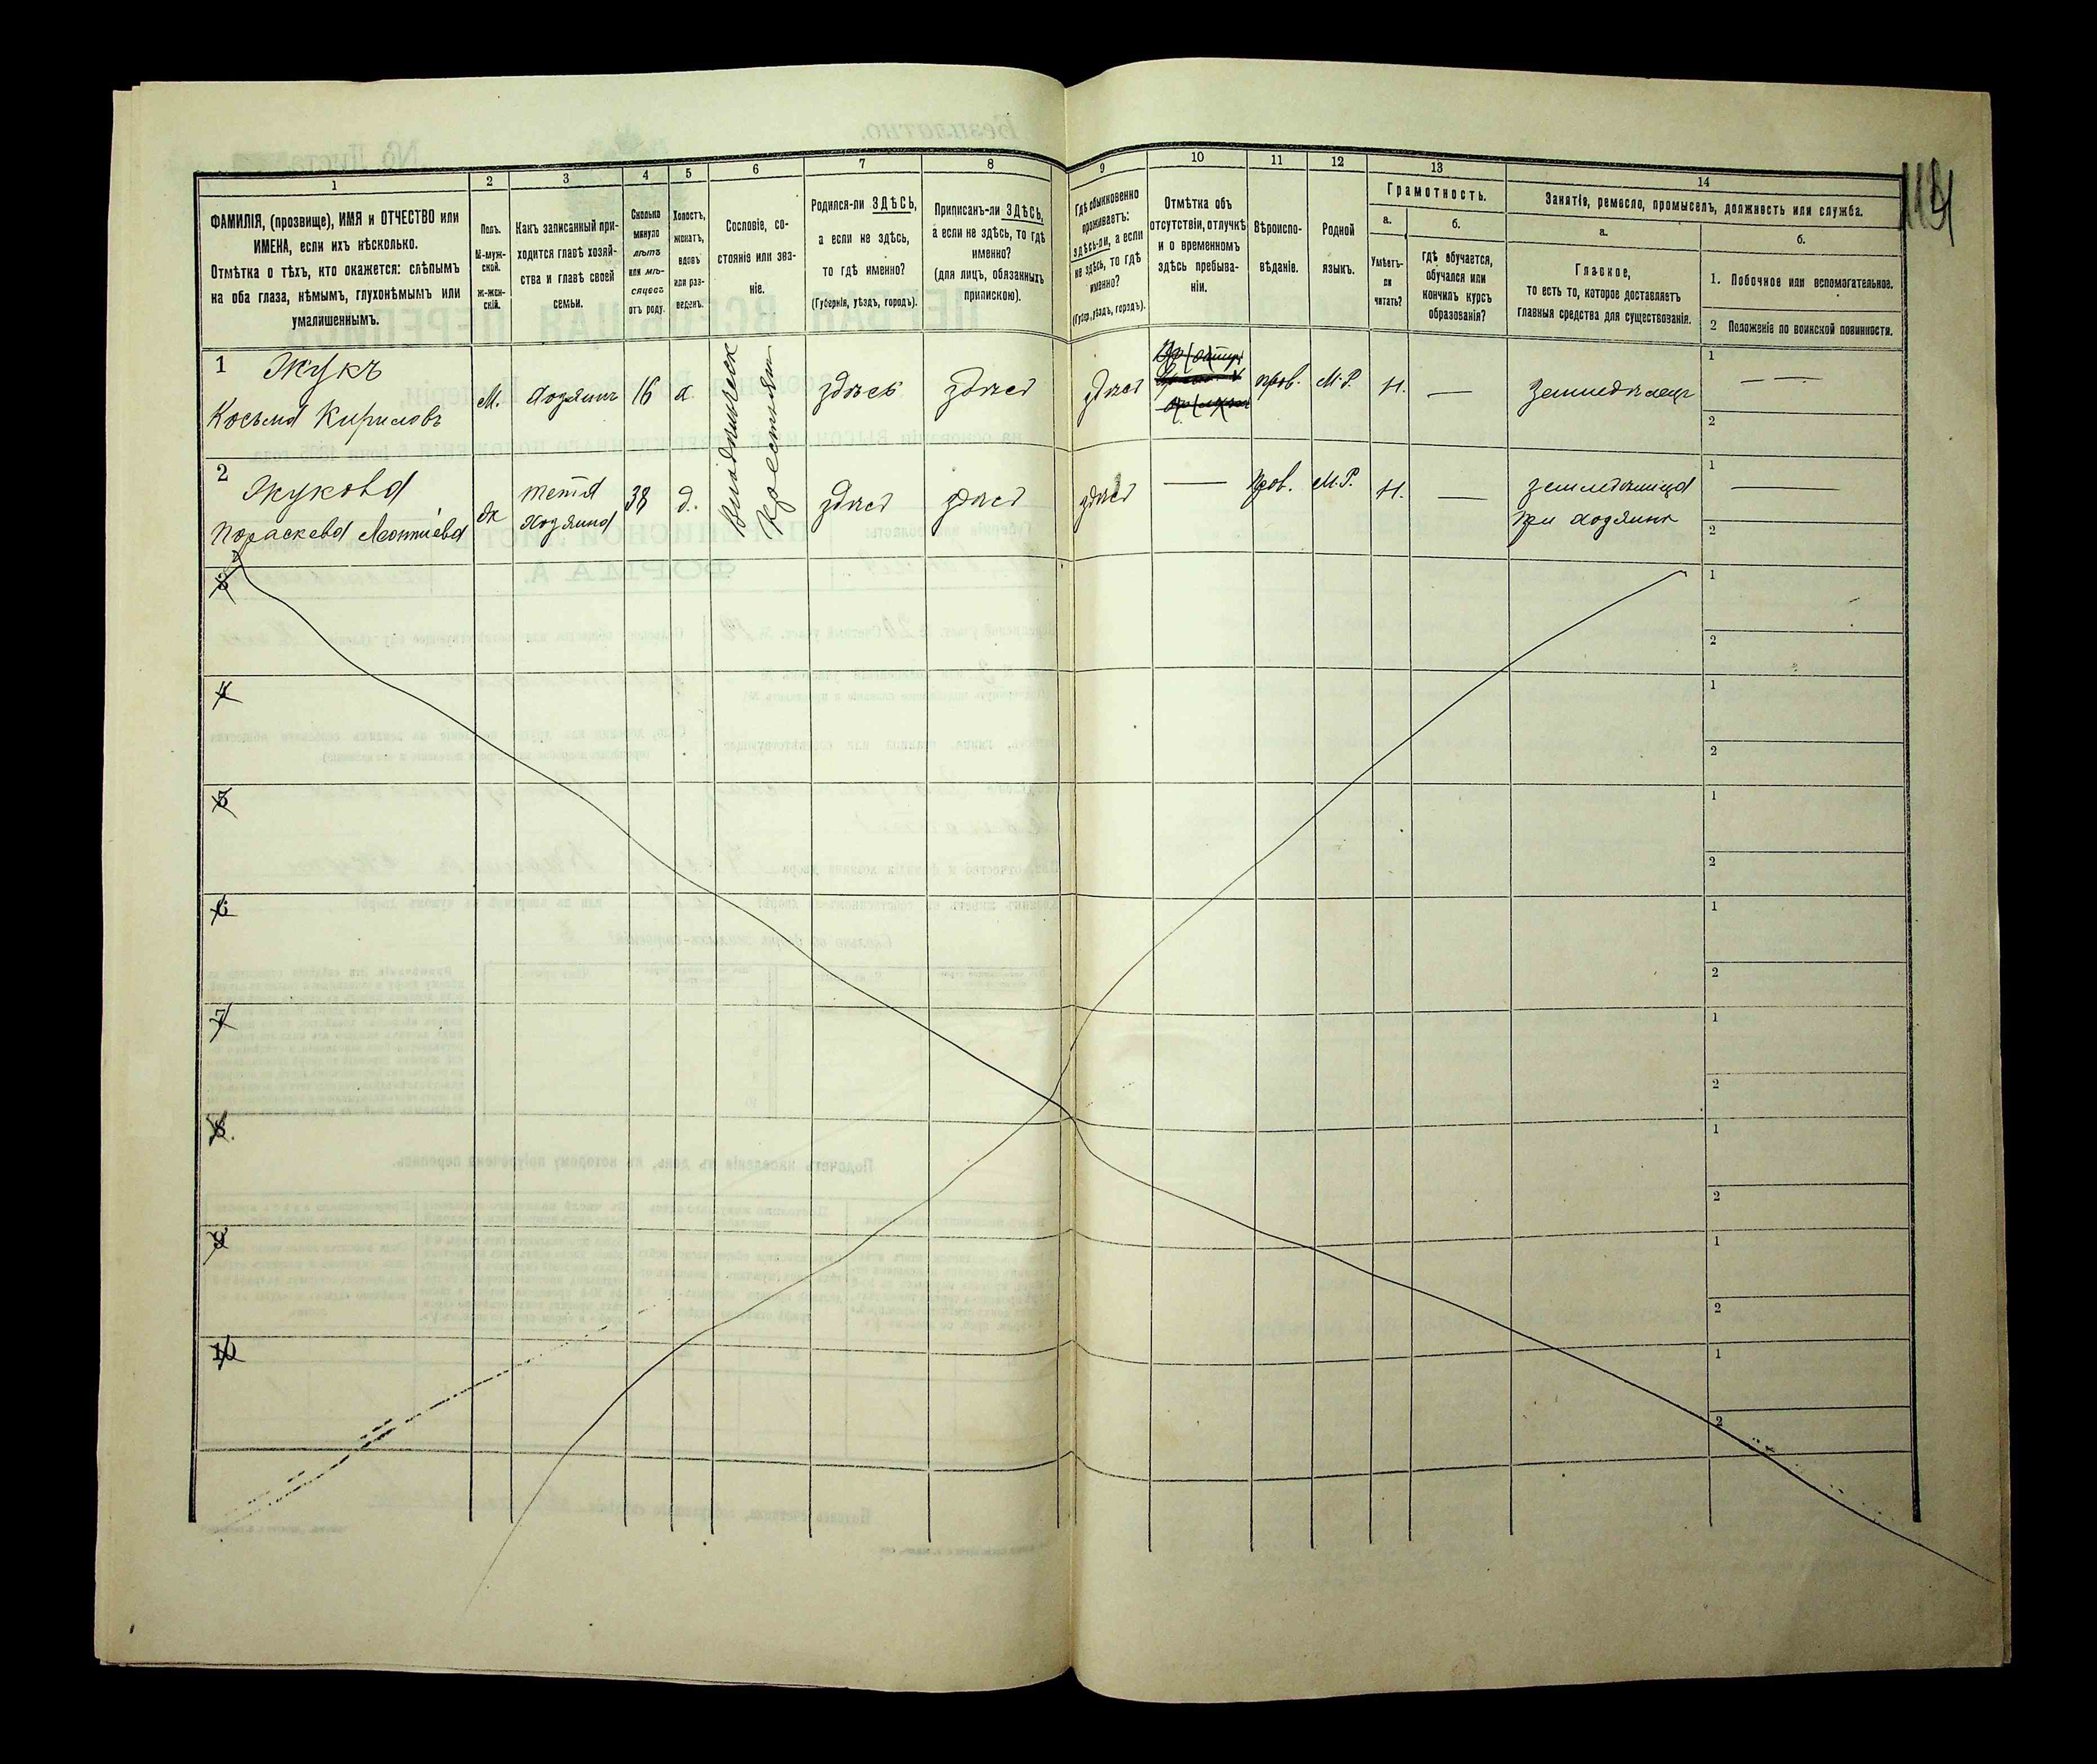 1
2
3
4
5
6
7
8
9
10
11
12
13
14
ФАМИЛІЯ, (прозвище), ИМЯ и ОТЧЕСТВО или
ИМЕНА, если ихъ нѣсколько.
Отмѣтка о тѣхъ, кто окажется: слѣпымъ
на оба глаза, нѣмымъ, глухонѣмымъ или
умалишеннымъ.
Полъ.
М-муж-
ской.
Ж-жен-
скій.
Какъ записанный при-
ходится главѣ хозяй-
ства и главѣ своей
семьи.
Сколько
минуло
лѣтъ
или мѣ-
сяцевъ
отъ роду.
Холостъ,
женатъ,
вдовъ
или раз-
веденъ.
Сословіе, со-
стояніе или зва-
ніе.
Родился-ли ЗДѢСЬ,
а если не здѣсь,
то гдѣ именно?
(Губернія, уѣздъ, городъ).
Приписанъ-ли ЗДѢСЬ,
а если не здѣсь, то гдѣ
именно?
(для лицъ, обязанныхъ
припискою).
Гдѣ обыкновенно
проживаетъ:
здѣсь-ли, а если
не здѣсь, то гдѣ
именно?
(Губер., уѣздъ, городъ).
Отмѣтка объ
отсутствіи, отлучкѣ
и о временномъ
здѣсь пребыва-
ніи.
Вѣроиспо-
вѣданіе.
Родной
языкъ.
Грамотность.
а.
Умѣетъ-
ли
читать?
б.
гдѣ обучается,
обучался или
кончилъ курсъ
образованія?
Занятіе, ремесло, промыселъ, должность или служба.
а.
Главное,
то есть то, которое доставляетъ
главныя средства для существованія.
б.
1. Побочное или вспомогательное.
2 Положеніе по воинской повинности.
1 Жукъ
Косьма Кириловъ
М.
хозяинъ
16
х
Крестьян
здѣсь
здѣсь
здѣсь
прав.
М.Р.
Н.
—
Земледѣлецъ
1 — —
2
2 Жукова
Параскева Леонтіева
Ж
тетка
хозяина
38
д.
здѣсь
здѣсь
здѣсь
—
прав.
М.Р.
Н.
—
при хозяинѣ
1 —
2
3
1
2
4
1
2
5
1
2
6
1
2
7
1
2
8
1
2
9
1
2
10
1
2